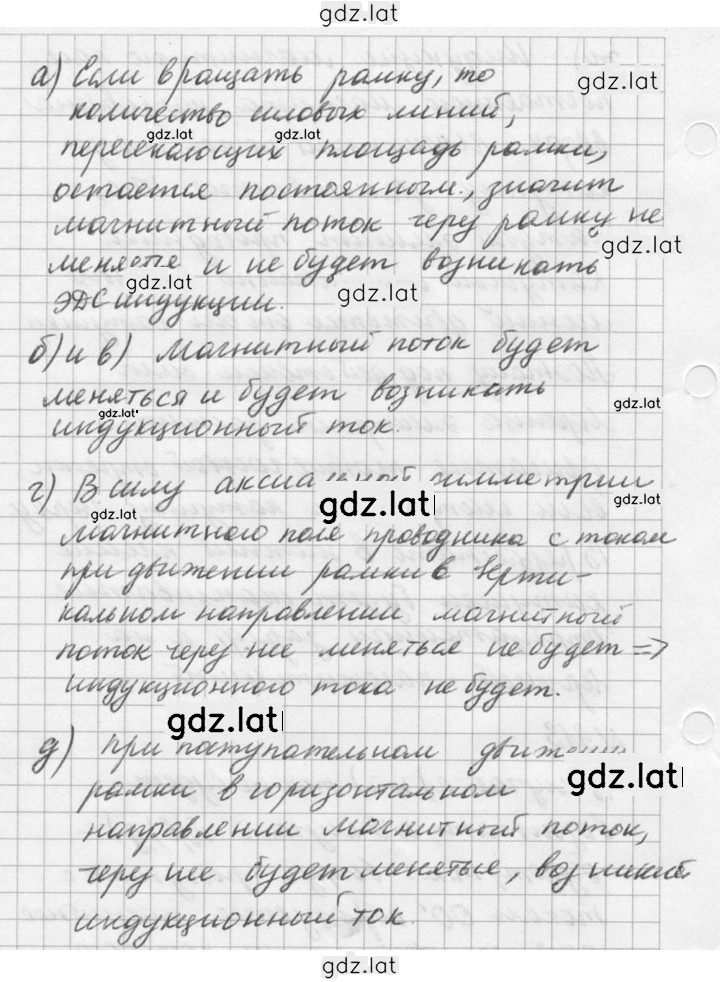 gdz.lat
а) Если вращать рамку, то
gdz.lat
количество силовых линий,
gdz.lat gdz.lat
пересекающих площадь рамки,
остается постоянным, значит
магнитный поток через рамку не
gdz.lat
меняется и не будет возникать
gdz.lat gdz.lat
ЭДС индукции.
б) и в) Магнитный поток будет
меняться и будет возникать
gdz.lat gdz.lat
индукционный ток.
г) В силу аксиальной симметрии
gdz.lat gdz.lat gdz.lat
магнитного поля проводника с током
при движении рамки в верти-
кальном направлении магнитный
поток через нее меняться не будет =>
индукционного тока не будет.
gdz.lat
д) При поступательном движении
gdz.lat
рамки в горизонтальном
направлении магнитный поток,
через нее будет меняться, возникнет
индукционный ток.
gdz.lat